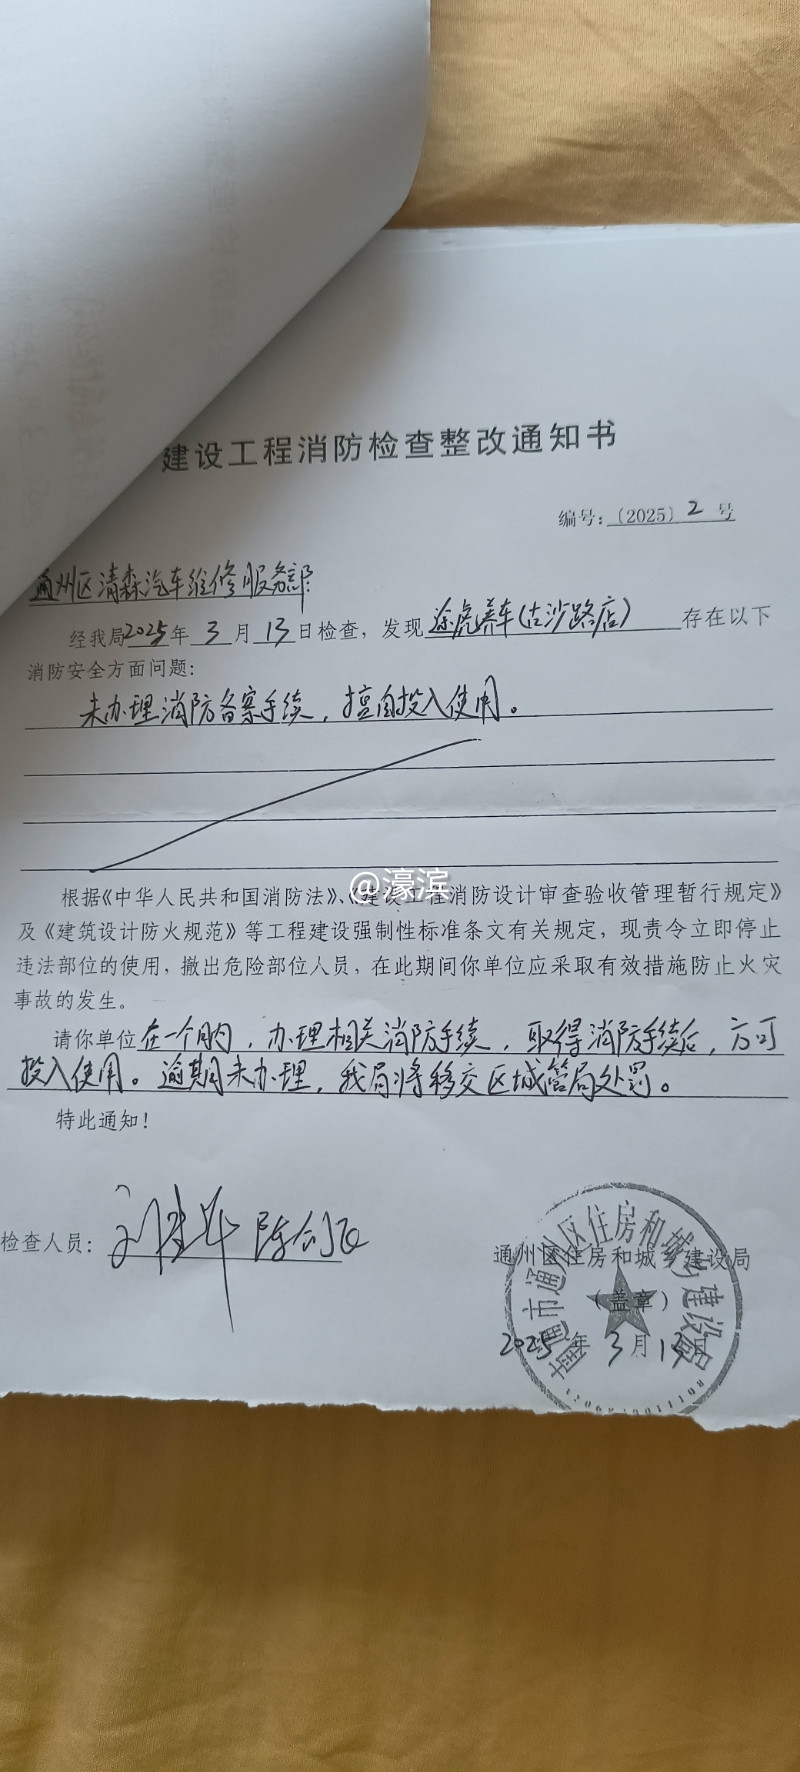 建设工程消防检查整改通知书
编号：〔2025〕2 号
通州区清森汽车维修服务部：
经我局2025年 3 月 13 日检查，发现 途虎养车(古沙路店) 存在以下
消防安全方面问题：
未办理消防备案手续，擅自投入使用。
@濠滨
根据《中华人民共和国消防法》、《建设工程消防设计审查验收管理暂行规定》
及《建筑设计防火规范》等工程建设强制性标准条文有关规定，现责令立即停止
违法部位的使用，撤出危险部位人员，在此期间你单位应采取有效措施防止火灾
事故的发生。
请你单位在一个月内，办理相关消防手续，取得消防手续后，方可
投入使用。逾期未办理，我局将移交区城管局处罚。
特此通知！
检查人员：
通州区住房和城乡建设局
（盖章）
2025 年 3 月 13 日
南通市通州区住房和城乡建设局